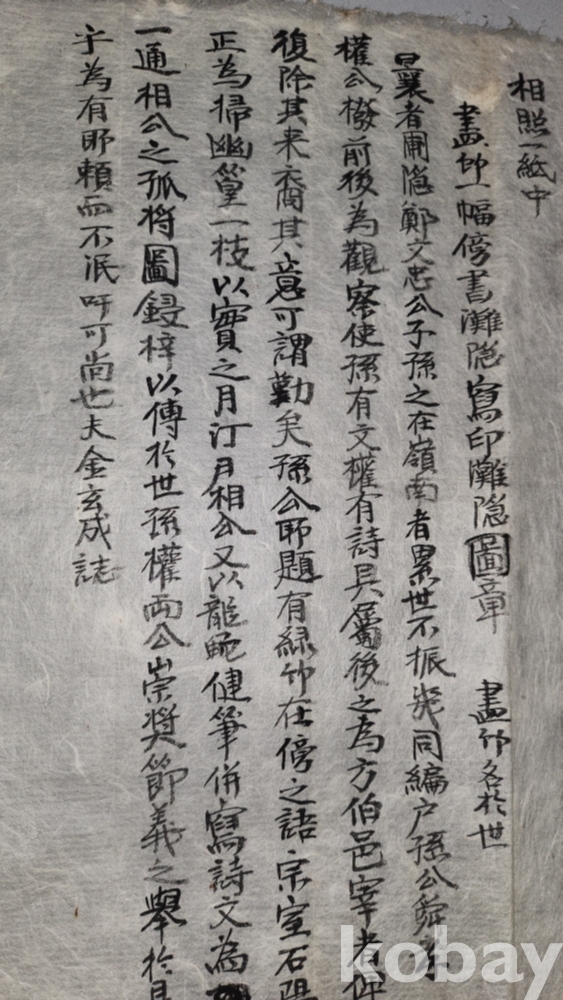 相照一紙中
畵竹一幅傍書灘隱寫印灘隱圖章 畵竹名於世
曩者圃隱鄭文忠公子孫之在嶺南者累世不振幾同編戶孫公舜孝
權公橃前後為觀察使孫有文權有詩具屬後之為方伯邑宰者俾
復除其来裔其意可謂勤矣孫公所題有綠竹在傍之語宗室石陽
正為掃幽篁一枝以實之月汀月相公又以龍蛇健筆併寫詩文為
一通相公之孤将圖鋟梓以傳於世孫權兩公崇奬節義之舉於是
乎為有所賴而不泯吁可尚也夫金玄成誌
kobay